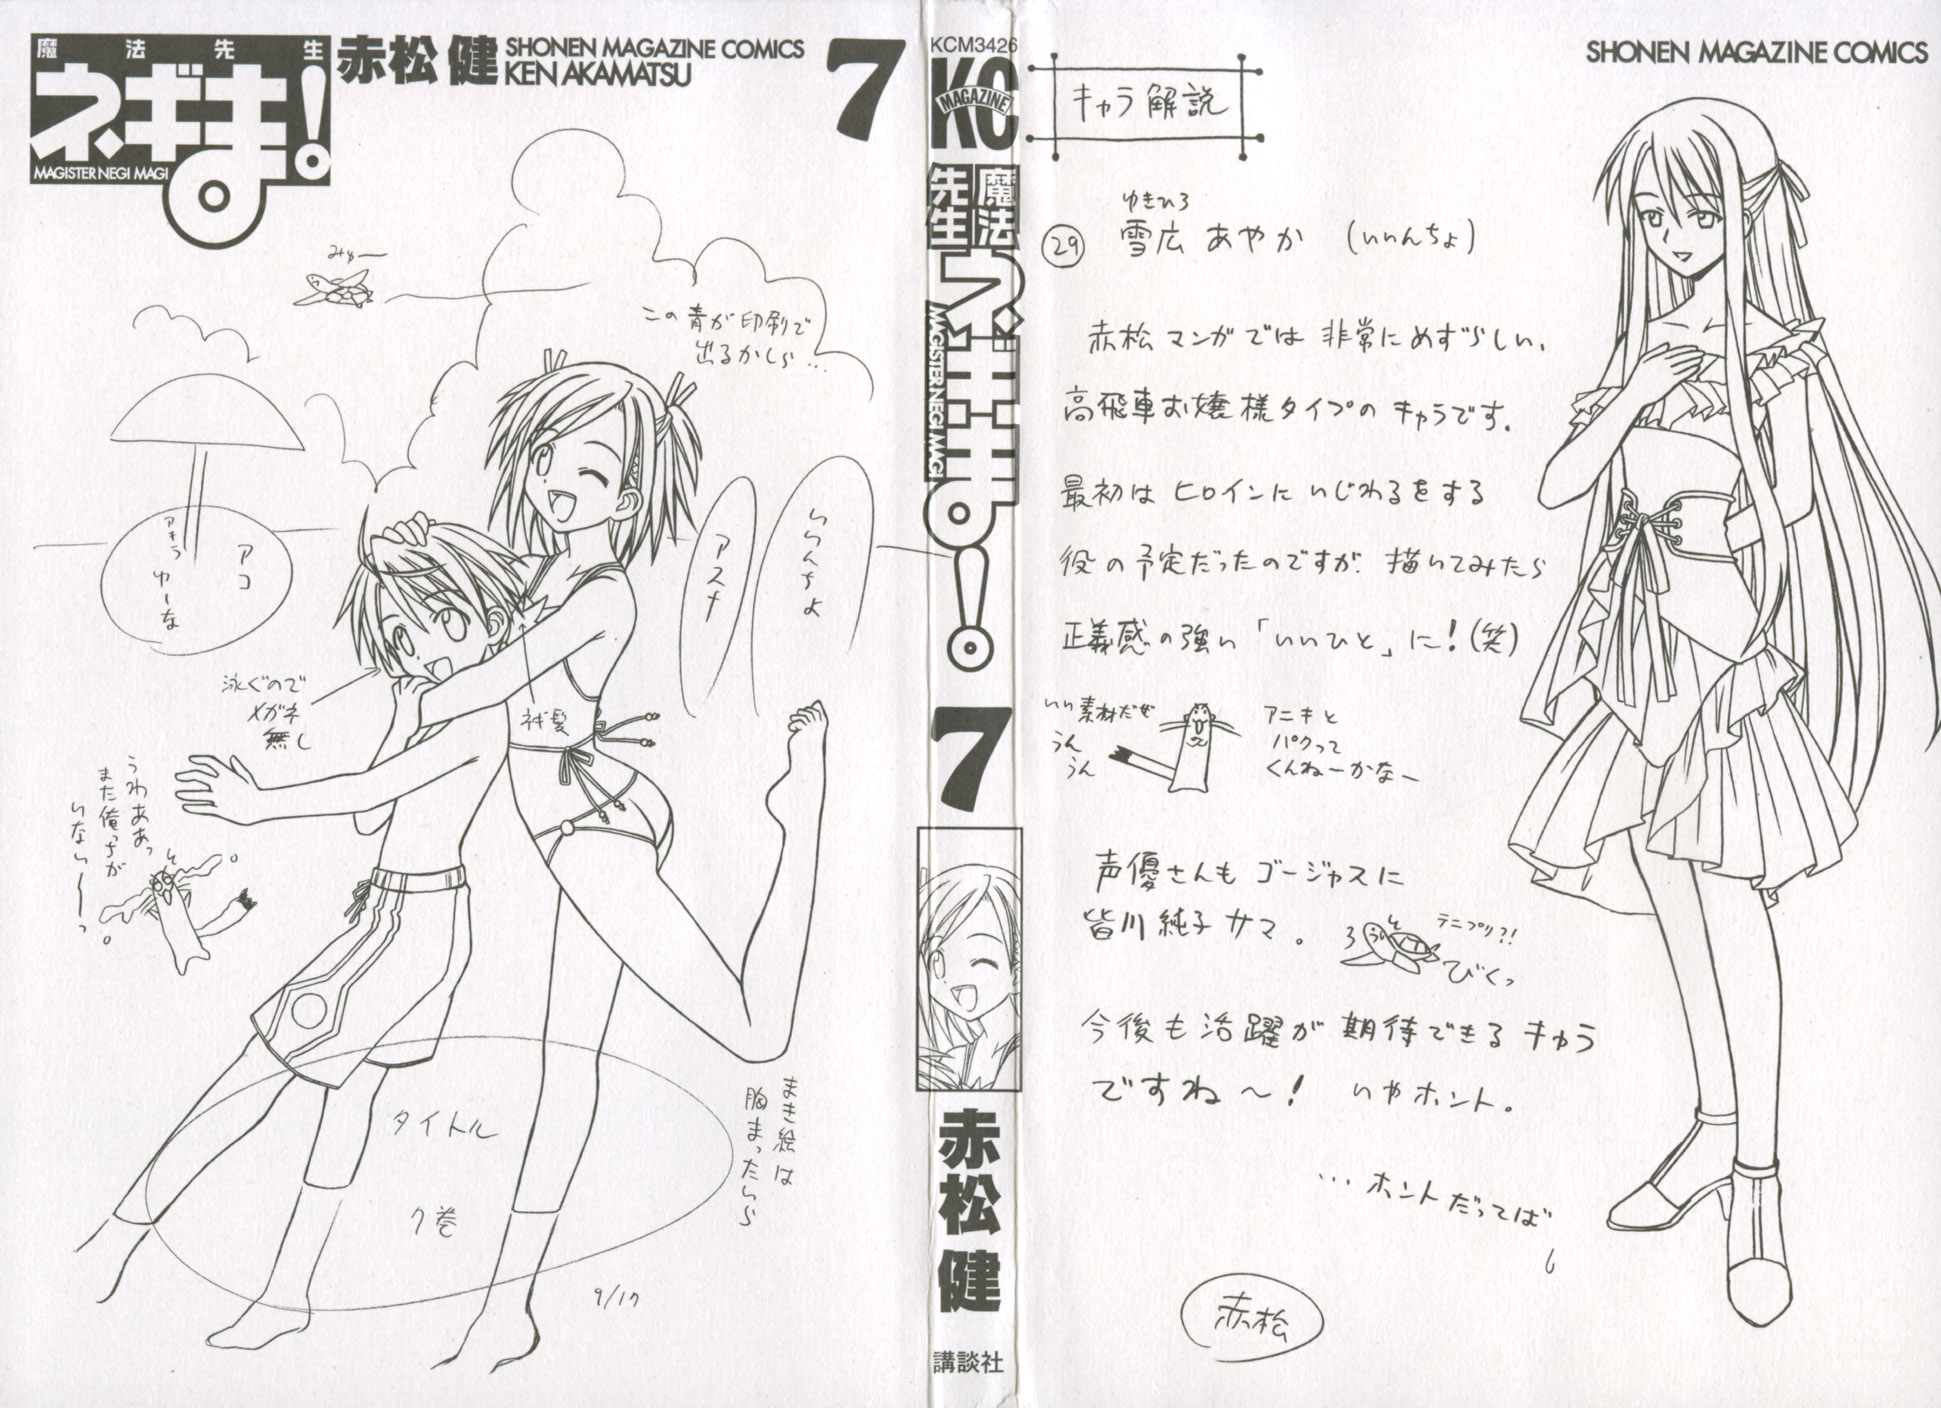 魔法先生
ネギま!
MAGISTER NEGI MAGI
赤松 健
SHONEN MAGAZINE COMICS
KEN AKAMATSU
7
みゅー
この青が印刷で
出るかしら…
アコ
アキラ
ゆーな
アスナ
いいんちょ
泳ぐので
メガネ
無し
うわああっ
また俺っちが
いない〜っ
タイトル
7巻
9/17
まき絵は
胸まったいら
KCM3426
KC
MAGAZINE
魔法先生
ネギま!
MAGISTER NEGI MAGI
7
赤松 健
講談社
SHONEN MAGAZINE COMICS
キャラ解説
ゆきひろ
㉙ 雪広 あやか (いいんちょ)
赤松マンガでは 非常にめずらしい、
高飛車お嬢様タイプの キャラです。
最初は ヒロインに いじわるをする
役の予定だったのですが、描いてみたら
正義感の強い「いいひと」に!(笑)
いい素材だぜ
うん
うん
アニキと
パクって
くんねーかなー
声優さんも ゴージャスに
皆川 純子 サマ。
テニプリ?!
びくっ
今後も 活躍が 期待できる キャラ
ですね〜! いやホント。
…ホントだってば
赤松